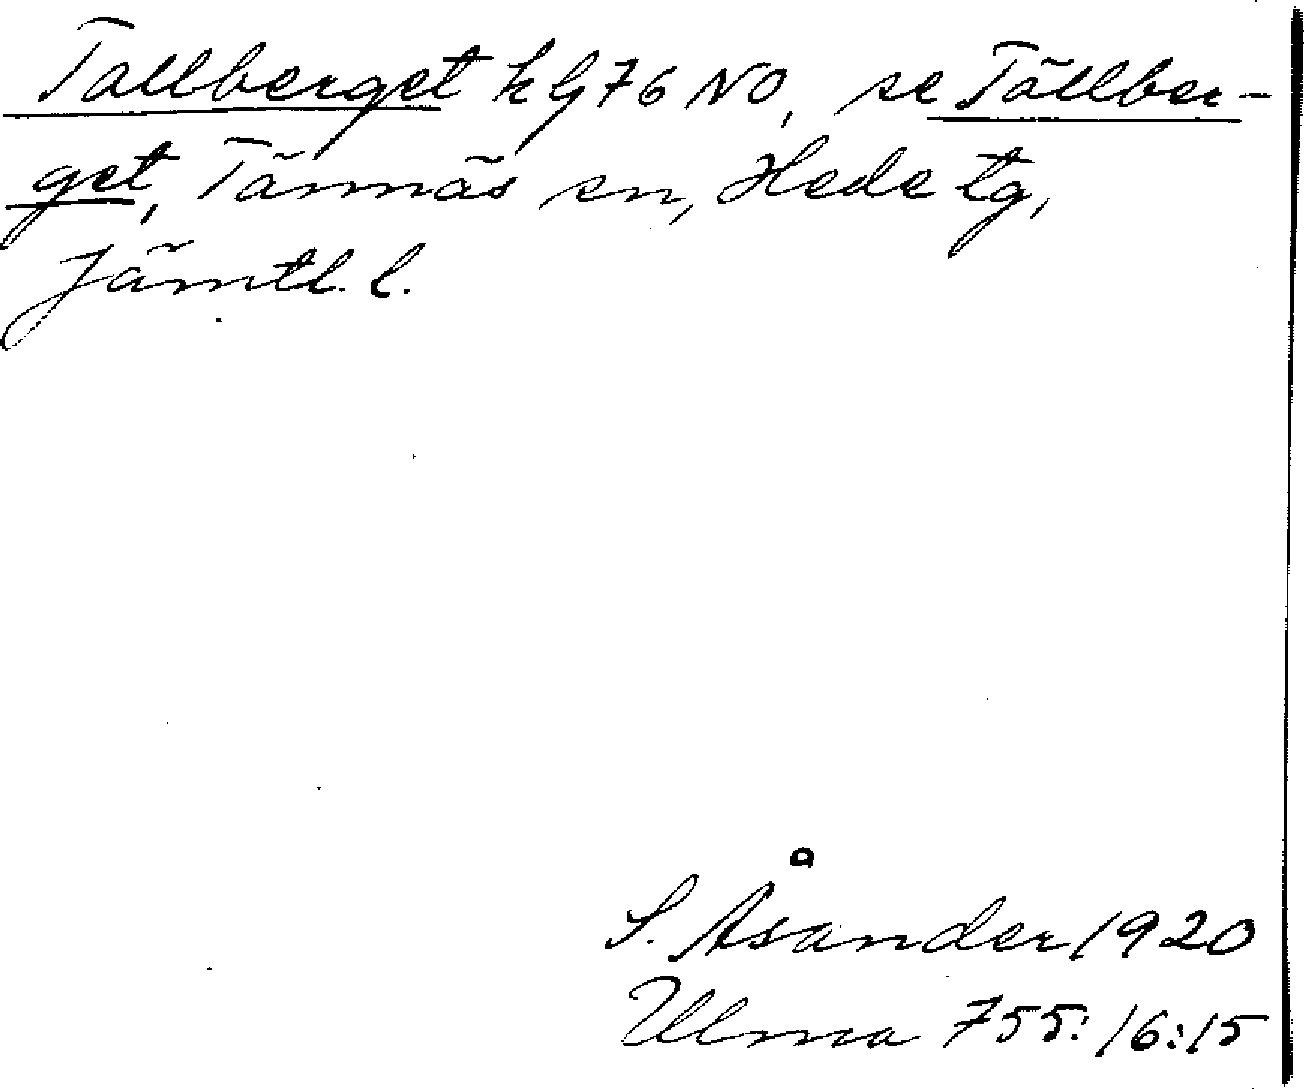 Tallberget k G 76 NO, se Tällber-
get, Tännäs sn, Hede tg,
Jämtl. l.
S. Åsander 1920
Ulma 755: 16:15